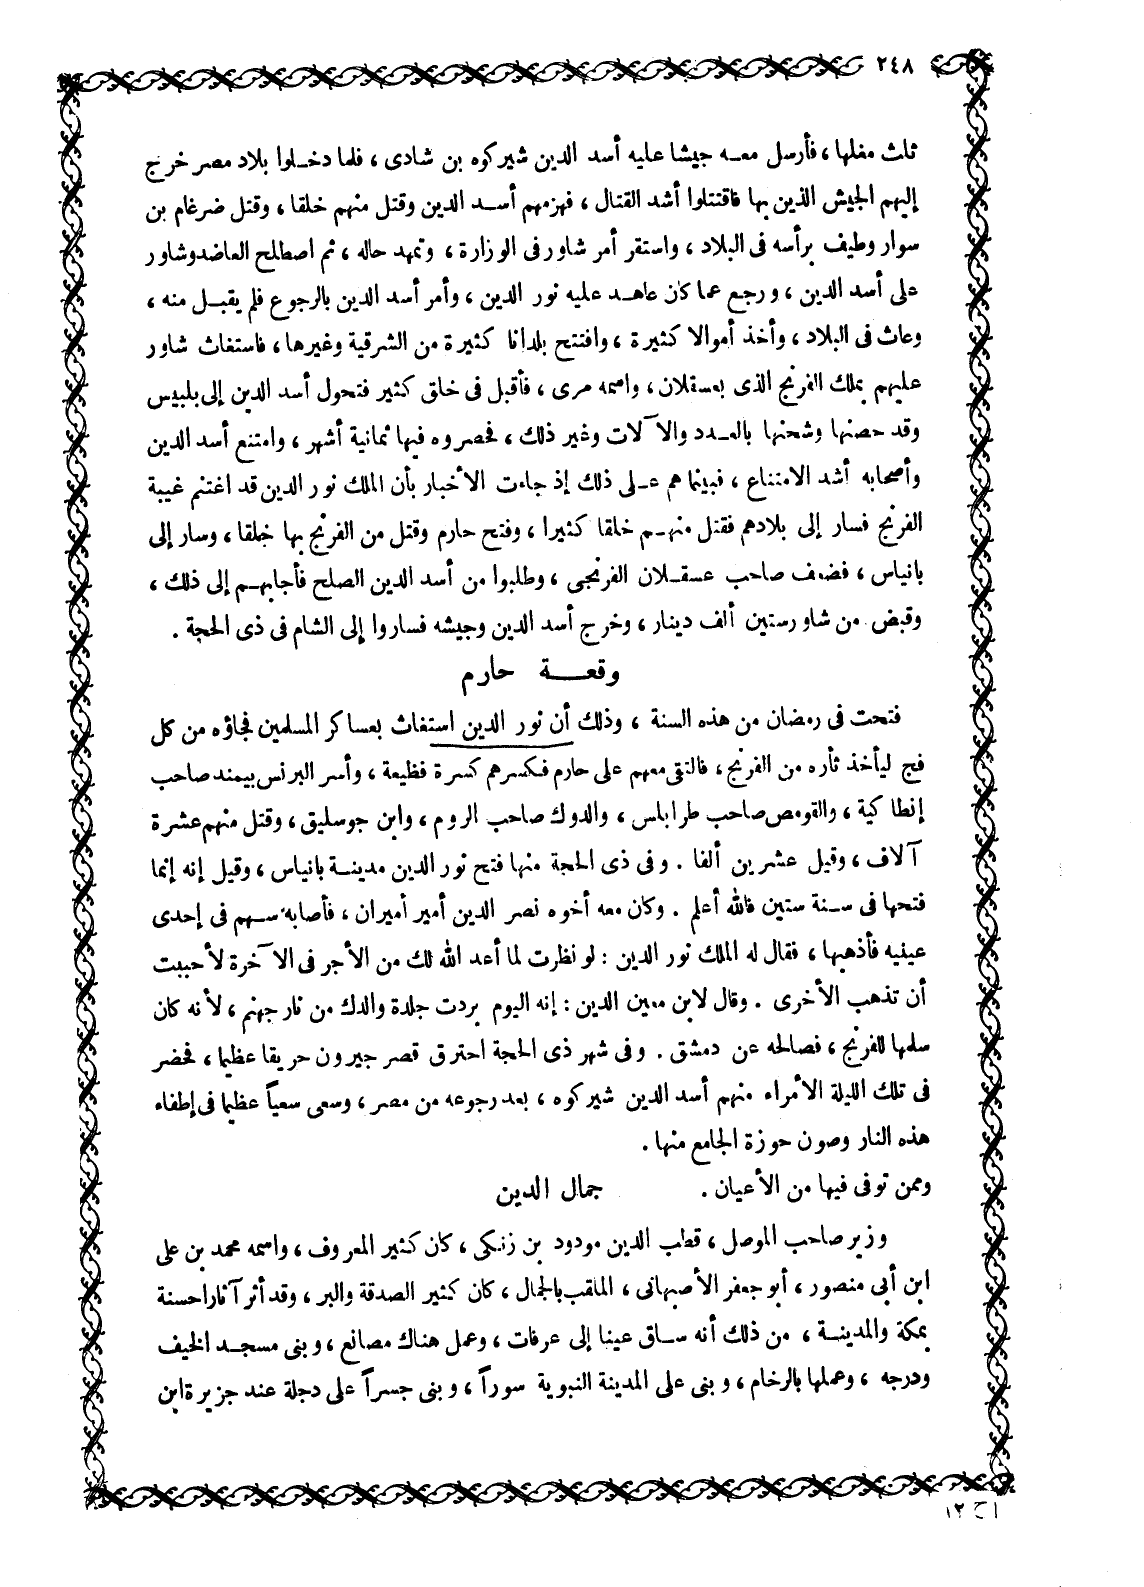 ٢٤٨
ثلث مغلها ، فأرسل معه جيشا عليه أسد الدين شيركوه بن شادى ، فلما دخلوا بلاد مصر خرج
إليهم الجيش الذين بها فاقتتلوا أشد القتال ، فهزمهم أسد الدين وقتل منهم خلقا ، وقتل ضرغام بن
سوار وطيف برأسه فى البلاد ، واستقر أمر شاور فى الوزارة ، وتمهد حاله ، ثم اصطلح العاضد وشاور
على أسد الدين ، ورجع عما كان عاهد عليه نور الدين ، وأمر أسد الدين بالرجوع فلم يقبل منه ،
وعاث فى البلاد ، وأخذ أموالا كثيرة ، وافتتح بلدانا كثيرة من الشرقية وغيرها ، فاستغاث شاور
عليهم بملك الفرنج الذى بعسقلان ، واسمه مرى ، فأقبل فى خلق كثير فتحول أسد الدين إلى بلبيس
وقد حصنها وشحنها بالعدد والآلات وغير ذلك ، فحصروه فيها ثمانية أشهر ، وامتنع أسد الدين
وأصحابه أشد الامتناع ، فبينما هم على ذلك إذ جاءت الأخبار بأن الملك نور الدين قد اغتنم غيبة
الفرنج فسار إلى بلادهم فقتل منهم خلقا كثيرا ، وفتح حارم وقتل من الفرنج بها خلقا ، وسار إلى
بانياس ، فضعف صاحب عسقلان الفرنجى ، وطلبوا من أسد الدين الصلح فأجابهم إلى ذلك ،
وقبض من شاور ستين ألف دينار ، وخرج أسد الدين وجيشه فساروا إلى الشام فى ذى الحجة .
وقعة حارم
فتحت فى رمضان من هذه السنة ، وذلك أن نور الدين استغاث بعساكر المسلمين فجاؤه من كل
فج ليأخذ ثأره من الفرنج ، فالتقى معهم على حارم فكسرهم كسرة فظيعة ، وأسر البرنس بيمند صاحب
إنطاكية ، والقومص صاحب طرابلس ، والدوك صاحب الروم ، وابن جوسليق ، وقتل منهم عشرة
آلاف ، وقيل عشرين ألفا . وفى ذى الحجة منها فتح نور الدين مدينة بانياس ، وقيل إنه إنما
فتحها فى سنة ستين فالله أعلم . وكان معه أخوه نصر الدين أمير أميران ، فأصابه سهم فى إحدى
عينيه فأذهبها ، فقال له الملك نور الدين : لو نظرت لما أعد الله لك من الأجر فى الآخرة لأحببت
أن تذهب الأخرى . وقال لابن معين الدين : إنه اليوم بردت جلدة والدك من نار جهنم ، لأنه كان
سلمها للفرنج ، فصالحه عن دمشق . وفى شهر ذى الحجة احترق قصر جيرون حريقا عظيما ، فحضر
فى تلك الليلة الأمراء منهم أسد الدين شيركوه ، بعد رجوعه من مصر ، وسعى سعياً عظيما فى إطفاء
هذه النار وصون حوزة الجامع منها .
وممن توفى فيها من الأعيان . جمال الدين
وزير صاحب الموصل ، قطب الدين مودود بن زنكى ، كان كثير المعروف ، واسمه محمد بن على
ابن أبى منصور ، أبو جعفر الأصبهانى ، الملقب بالجمال ، كان كثير الصدقة والبر ، وقد أثر آثارا حسنة
بمكة والمدينة ، من ذلك أنه ساق عينا إلى عرفات ، وعمل هناك مصانع ، وبنى مسجد الخيف
ودرجه ، وعملها بالرخام ، وبنى على المدينة النبوية سوراً ، وبنى جسراً على دجلة عند جزيرة ابن
ا ج ١٢